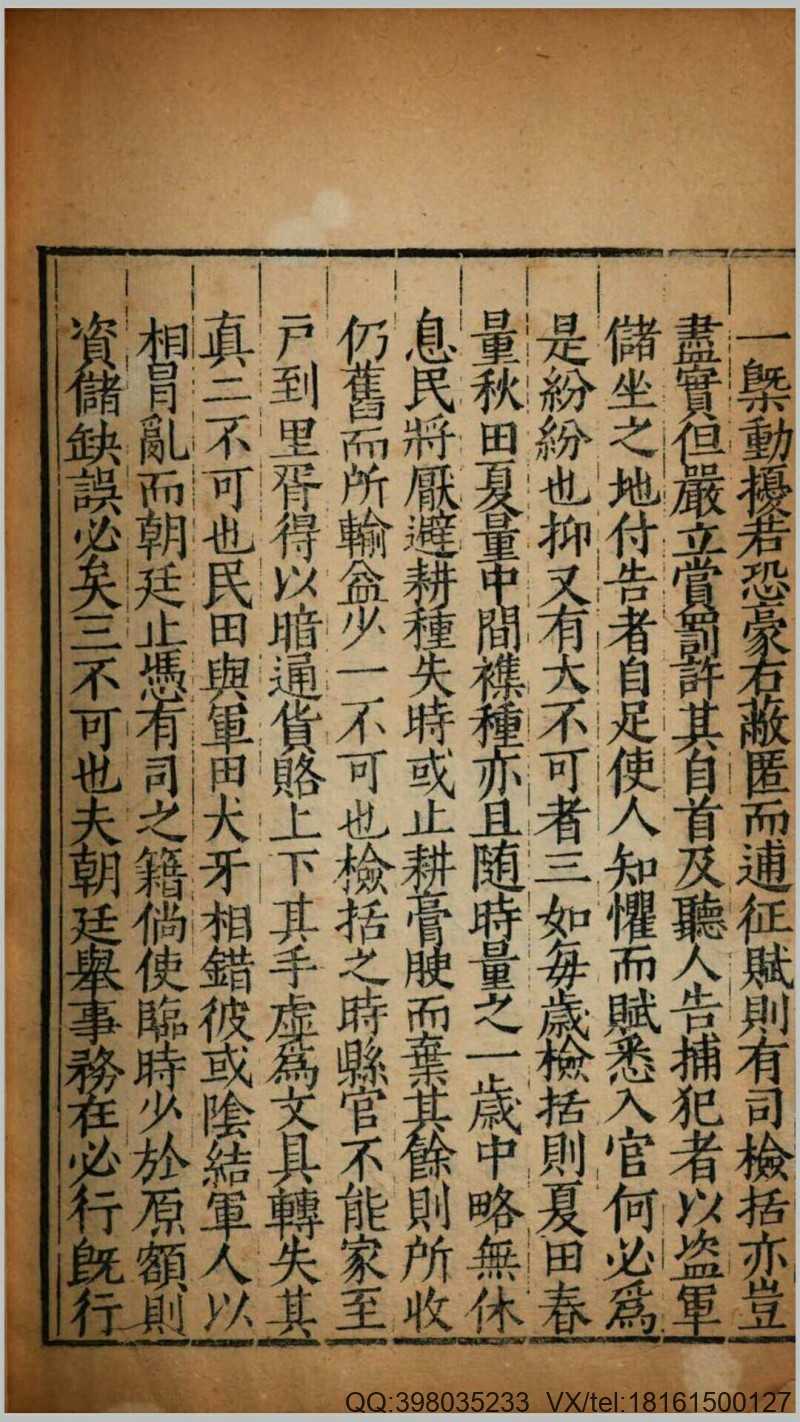 一槩動擾若恐豪右蔽匿而逋征賦則有司檢括亦豈
盡實但嚴立賞罰許其自首及聽人告捕犯者以盜軍
儲坐之地付告者自足使人知懼而賦悉入官何必爲
是紛紛也抑又有大不可者三如每歲檢括則夏田春
量秋田夏量中間襍種亦且随時量之一歲中略無休
息民將厭避耕種失時或止耕膏腴而棄其餘則所收
仍舊而所輸益少一不可也檢括之時縣官不能家至
戸到里胥得以暗通貨賂上下其手虛爲文具轉失其
真二不可也民田與軍田犬牙相錯彼或陰結軍人以
相冐亂而朝廷止憑有司之籍倘使臨時少於原額則
資儲缺誤必矣三不可也夫朝廷舉事務在必行旣行
QQ:398035233 VX/tel:18161500127